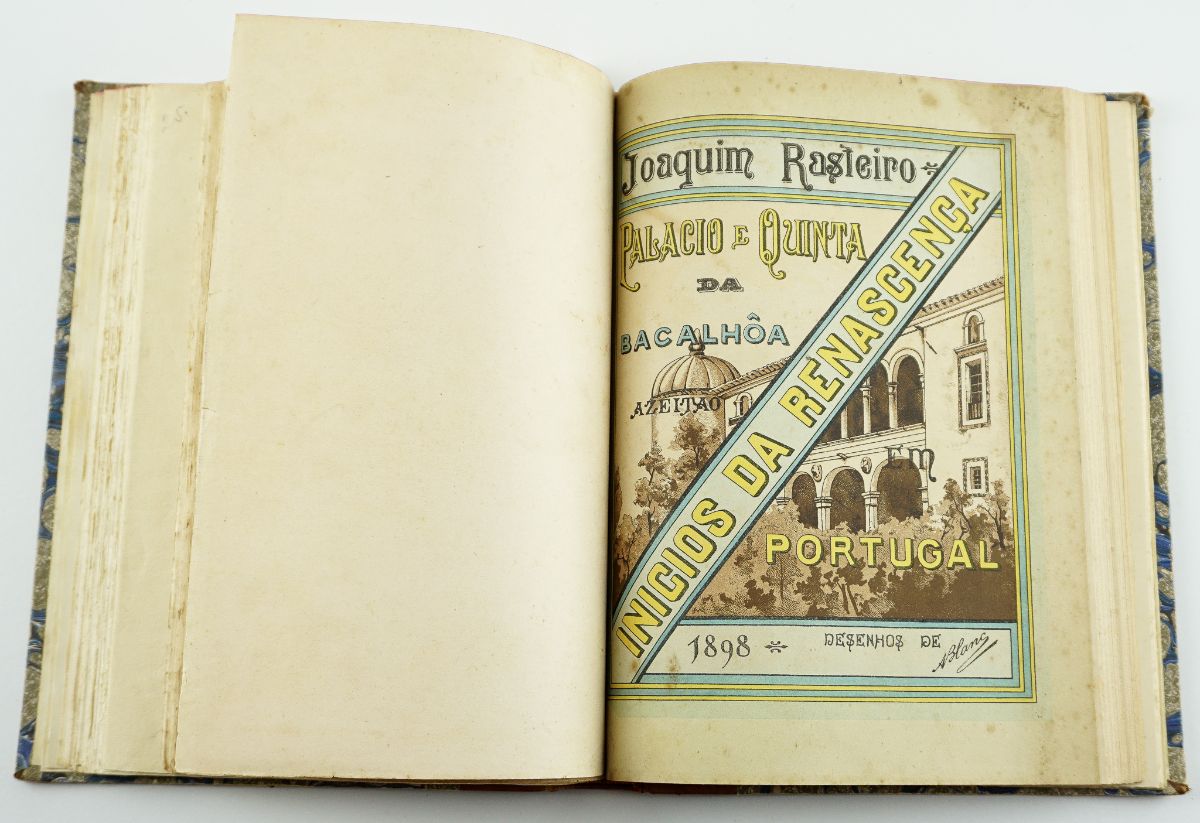 Joaquim Rasteiro
PALACIO E QUINTA
DA
BACALHÔA
AZEITÃO
INICIOS DA RENASCENÇA
EM
PORTUGAL
1898 DESENHOS DE
A Blanc